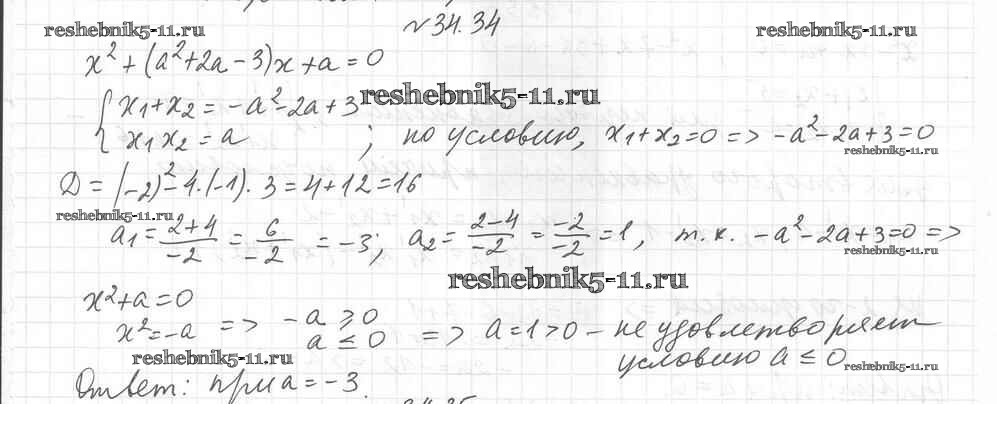 №34.34
reshebnik5-11.ru reshebnik5-11.ru
x² + (a² + 2a - 3)x + a = 0
{ x₁ + x₂ = -a² - 2a + 3 reshebnik5-11.ru
x₁x₂ = a ; по условию, x₁ + x₂ = 0 => -a² - 2a + 3 = 0
reshebnik5-11.ru
D = (-2)² - 4·(-1)·3 = 4 + 12 = 16
reshebnik5-11.ru
a₁ = (2+4)/(-2) = 6/(-2) = -3; a₂ = (2-4)/(-2) = (-2)/(-2) = 1, т.к. -a² - 2a + 3 = 0 =>
reshebnik5-11.ru
reshebnik5-11.ru
x² + a = 0
x² = -a => -a ≥ 0
a ≤ 0 => a = 1 > 0 - не удовлетворяет
условию a ≤ 0
reshebnik5-11.ru reshebnik5-11.ru
Ответ: при a = -3.